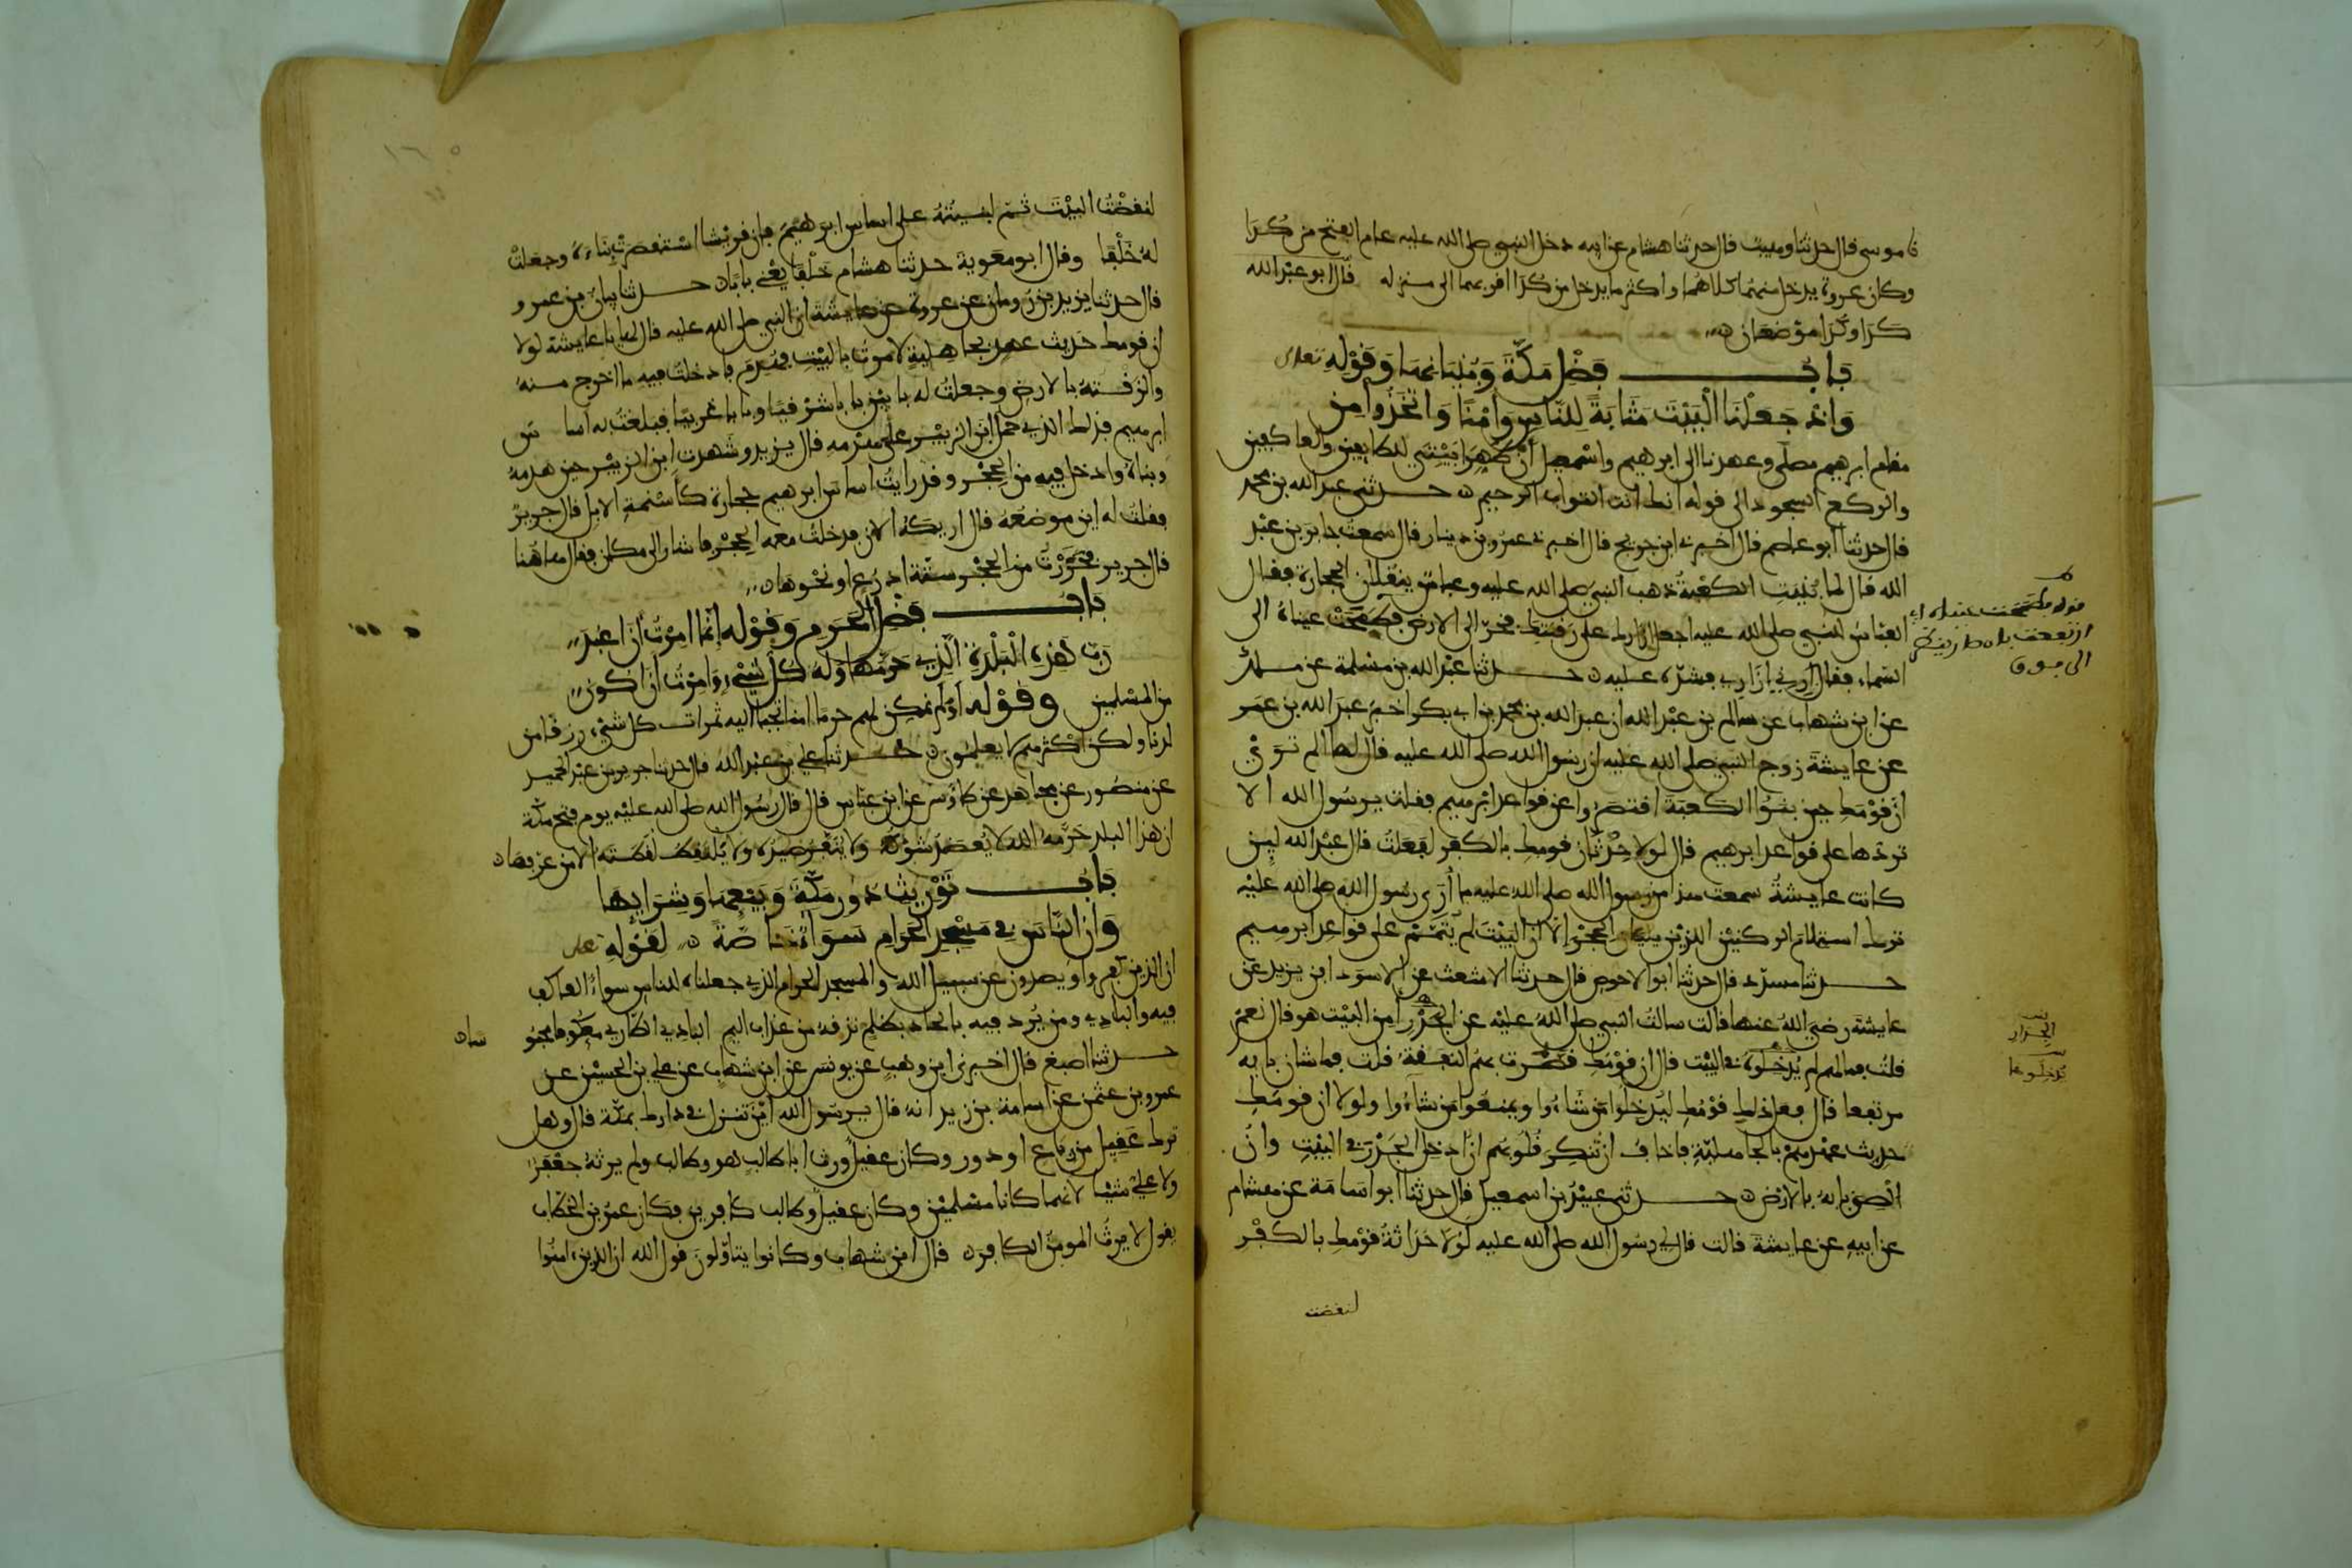 نا موسى قال حدثنا وهيب قال حدثنا هشام عن ابيه دخل النبي صلى الله عليه عام الفتح من كدا
وكان عروة يدخل منهما كلاهما واكثر ما يدخل من كدا اقربهما الى منزله قال ابو عبد الله
كدا وكدا موضعان
باب فضل مكة وبنيانها وقوله تعلى
واذ جعلنا البيت مثابة للناس وامنا واتخذوا من
مقام ابرهيم مصلى وعهدنا الى ابرهيم واسمعيل أن طهرا بيتي للطايفين والعاكفين
والركع السجود الى قوله انك انت التواب الرحيم حدثني عبد الله بن محمد
قال حدثنا أبو عاصم قال اخبرني ابن جريج قال اخبرني عمرو بن دينار قال سمعت جابر بن عبد
الله قال لما بنيت الكعبة ذهب النبي صلى الله عليه وعباس ينقلان الحجارة فقال
العباس للنبي صلى الله عليه اجعل ازارك على رقبتك فخر الى الارض فطمحت عيناه الى
السماء فقال أرني ازاري فشده عليه حدثنا عبد الله بن مسلمة عن ملك
عن ابن شهاب عن سالم بن عبد الله ان عبد الله بن محمد بن ابي بكر اخبر عبد الله بن عمر
عن عايشة زوج النبي صلى الله عليه ان رسول الله صلى الله عليه قال لها الم تري
ان قومك حين بنوا الكعبة اقتصروا عن قواعد ابرهيم فقلت يرسول الله الا
تردها على قواعد ابرهيم قال لولا حدثان قومك بالكفر لفعلت قال عبد الله لين
كانت عايشة سمعت هذا من رسول الله صلى الله عليه ما أرى رسول الله صلى الله عليه
ترك استلام الركنين اللذين يليان الحجر الا ان البيت لم يتمم على قواعد ابرهيم
حدثنا مسدد قال حدثنا ابو الاحوص قال حدثنا الاشعث عن الاسود ابن يزيد عن
عايشة رضي الله عنها قالت سالت النبي صلى الله عليه عن الجدر أمن البيت هو قال نعم
قلت فما لهم لم يدخلوه في البيت قال ان قومك قصرت بهم النفقة قلت فما شان بابه
مرتفعا قال فعل ذلك قومك ليدخلوا من شاءوا ويمنعوا من شاءوا ولولا ان قومك
حديث عهدهم بالجاهلية فاخاف ان تنكر قلوبهم ان ادخل الجدر في البيت وان
الصق بابه بالارض حدثني عبيد بن اسمعيل قال حدثنا ابو اسامة عن هشام
عن ابيه عن عايشة قالت قال لي رسول الله صلى الله عليه لولا حداثة قومك بالكفر
لنقضت
قوله طمحت عيناه اي
ارتفعت
الى فوق
الجدار
يدخلوها
لنقضت البيت ثم لبنيته على اساس ابرهيم فان قريشا استقصرت بناءه وجعلت
له خلفا وقال ابو معوية حدثنا هشام خلفا يعني بابا حدثنا بيان بن عمرو
قال حدثنا يزيد بن رومان عن عروة عن عايشة ان النبي صلى الله عليه قال لها يا عايشة لولا
ان قومك حديث عهد بجاهلية لامرت بالبيت فهدم فادخلت فيه ما اخرج منه
والزقته بالارض وجعلت له بابين بابا شرقيا وبابا غربيا فبلغت به اساس
ابرهيم فذلك الذي حمل ابن الزبير على هدمه قال يزيد وشهدت ابن الزبير حين هدمه
وبناه وادخل فيه من الحجر وقد رايت اساس ابرهيم حجارة كاسنمة الابل قال جرير
فقلت له اين موضعه قال اريكه الان فدخلت معه الحجر فاشار الى مكان فقال هاهنا
قال جرير فحزرت من الحجر ستة اذرع او نحوها
باب فضل الحرم وقوله إنما امرت أن اعبد
رب هذه البلدة الذي حرمها وله كل شيء وامرت ان اكون
من المسلمين وقوله اولم نمكن لهم حرما امنا تجبى اليه ثمرات كل شيء رزقا من
لدنا ولكن اكثرهم لا يعلمون حدثنا علي بن عبد الله قال حدثنا جرير بن عبد الحميد
عن منصور عن مجاهد عن طاوس عن ابن عباس قال قال رسول الله صلى الله عليه يوم فتح مكة
ان هذا البلد حرمه الله لا يعضد شوكه ولا ينفر صيده ولا يلتقط لقطته الا من عرفها
باب توريث دور مكة وبيعها وشرايها
وان الناس في مسجد الحرام سواء خاصة لقوله تعلى
ان الذين كفروا ويصدون عن سبيل الله والمسجد الحرام الذي جعلناه للناس سواء العاكف
فيه والبادي ومن يرد فيه بالحاد بظلم نذقه من عذاب اليم البادي الطاري معكوفا محبو
سا
حدثنا اصبغ قال اخبرني ابن وهب عن يونس عن ابن شهاب عن علي بن الحسين عن
عمرو بن عثمن عن اسامة بن زيد انه قال يرسول الله اين تنزل في دارك بمكة قال وهل
ترك عقيل من رباع او دور وكان عقيل ورث ابا طالب هو وطالب ولم يرثه جعفر
ولا علي شيئا لانهما كانا مسلمين وكان عقيل وطالب كافرين فكان عمر بن الخطاب
يقول لا يرث المومن الكافر قال ابن شهاب وكانوا يتاولون قول الله ان الذين امنوا